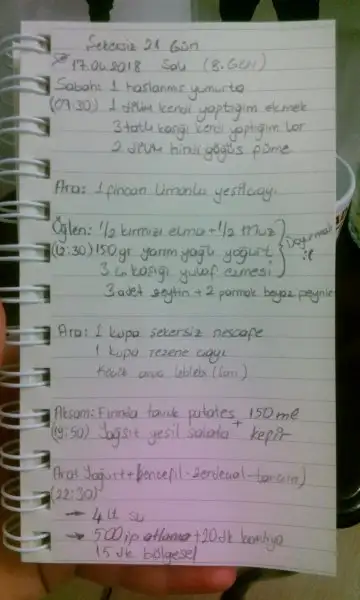 Şekersiz 21 Gün
17.04.2018 Salı (8. Gün)
Sabah: 1 haşlanmış yumurta
(07:30) 1 dilim kendi yaptığım ekmek
3 tatlı kaşığı kendi yaptığım lor
2 dilim hindi göğüs füme
Ara: 1 fincan limonlu yeşilçay
Öğlen: 1/2 kırmızı elma + 1/2 muz
(12:30) 150 gr yarım yağlı yoğurt
3 kaşığı yulaf ezmesi
3 adet zeytin + 2 parmak beyaz peynir
Ara: 1 kupa şekersiz nescafe
1 kupa rezene çayı
leblebi
Akşam: Fırında tavuk patates + 150 ml
(19:50) Yağsız yeşil salata kefir
Ara: Yoğurt + (zencefil - zerdeçal - tarçın)
(22:30)
→ 4 lt su
→ 500 ip atlama + 20 dk
15 dk bölgesel